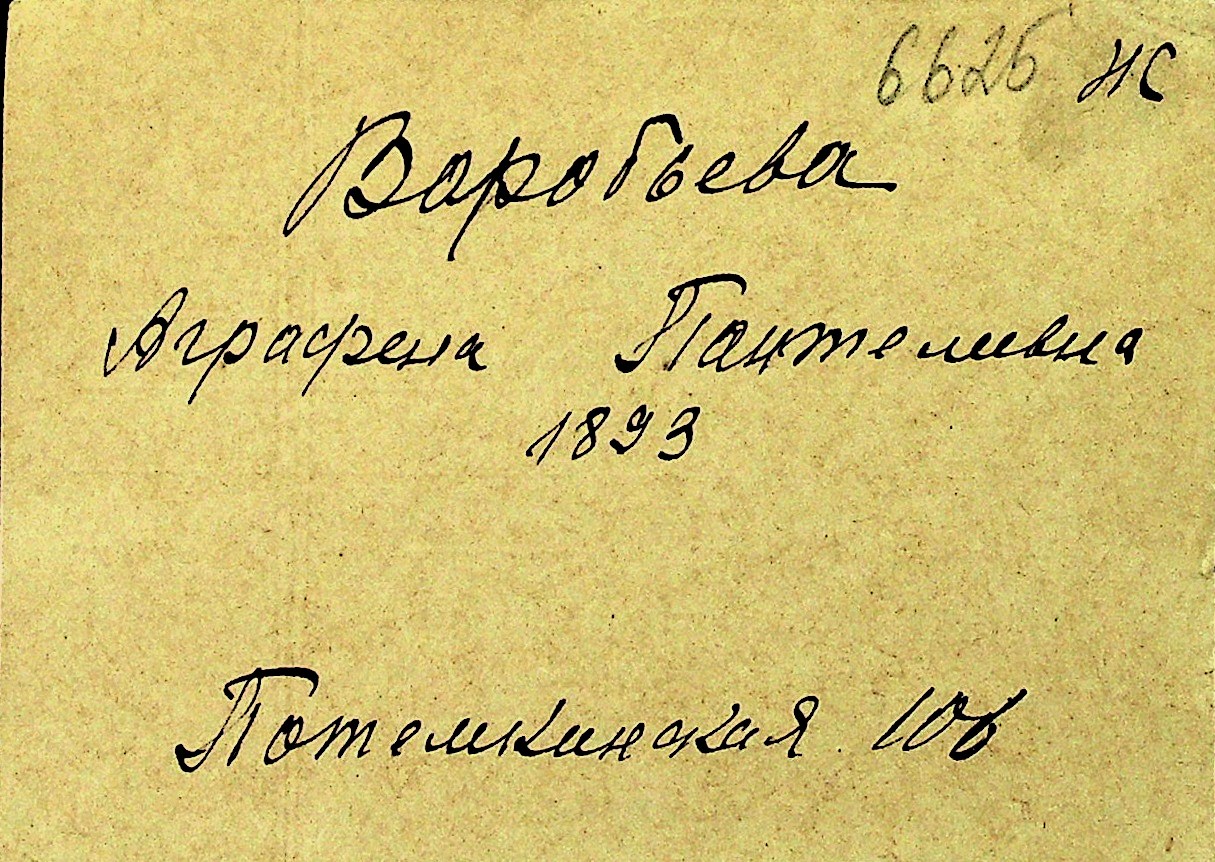 6625 НС
Воробьева
Аграфена Пантеливна
1893
Потемкинская 10в